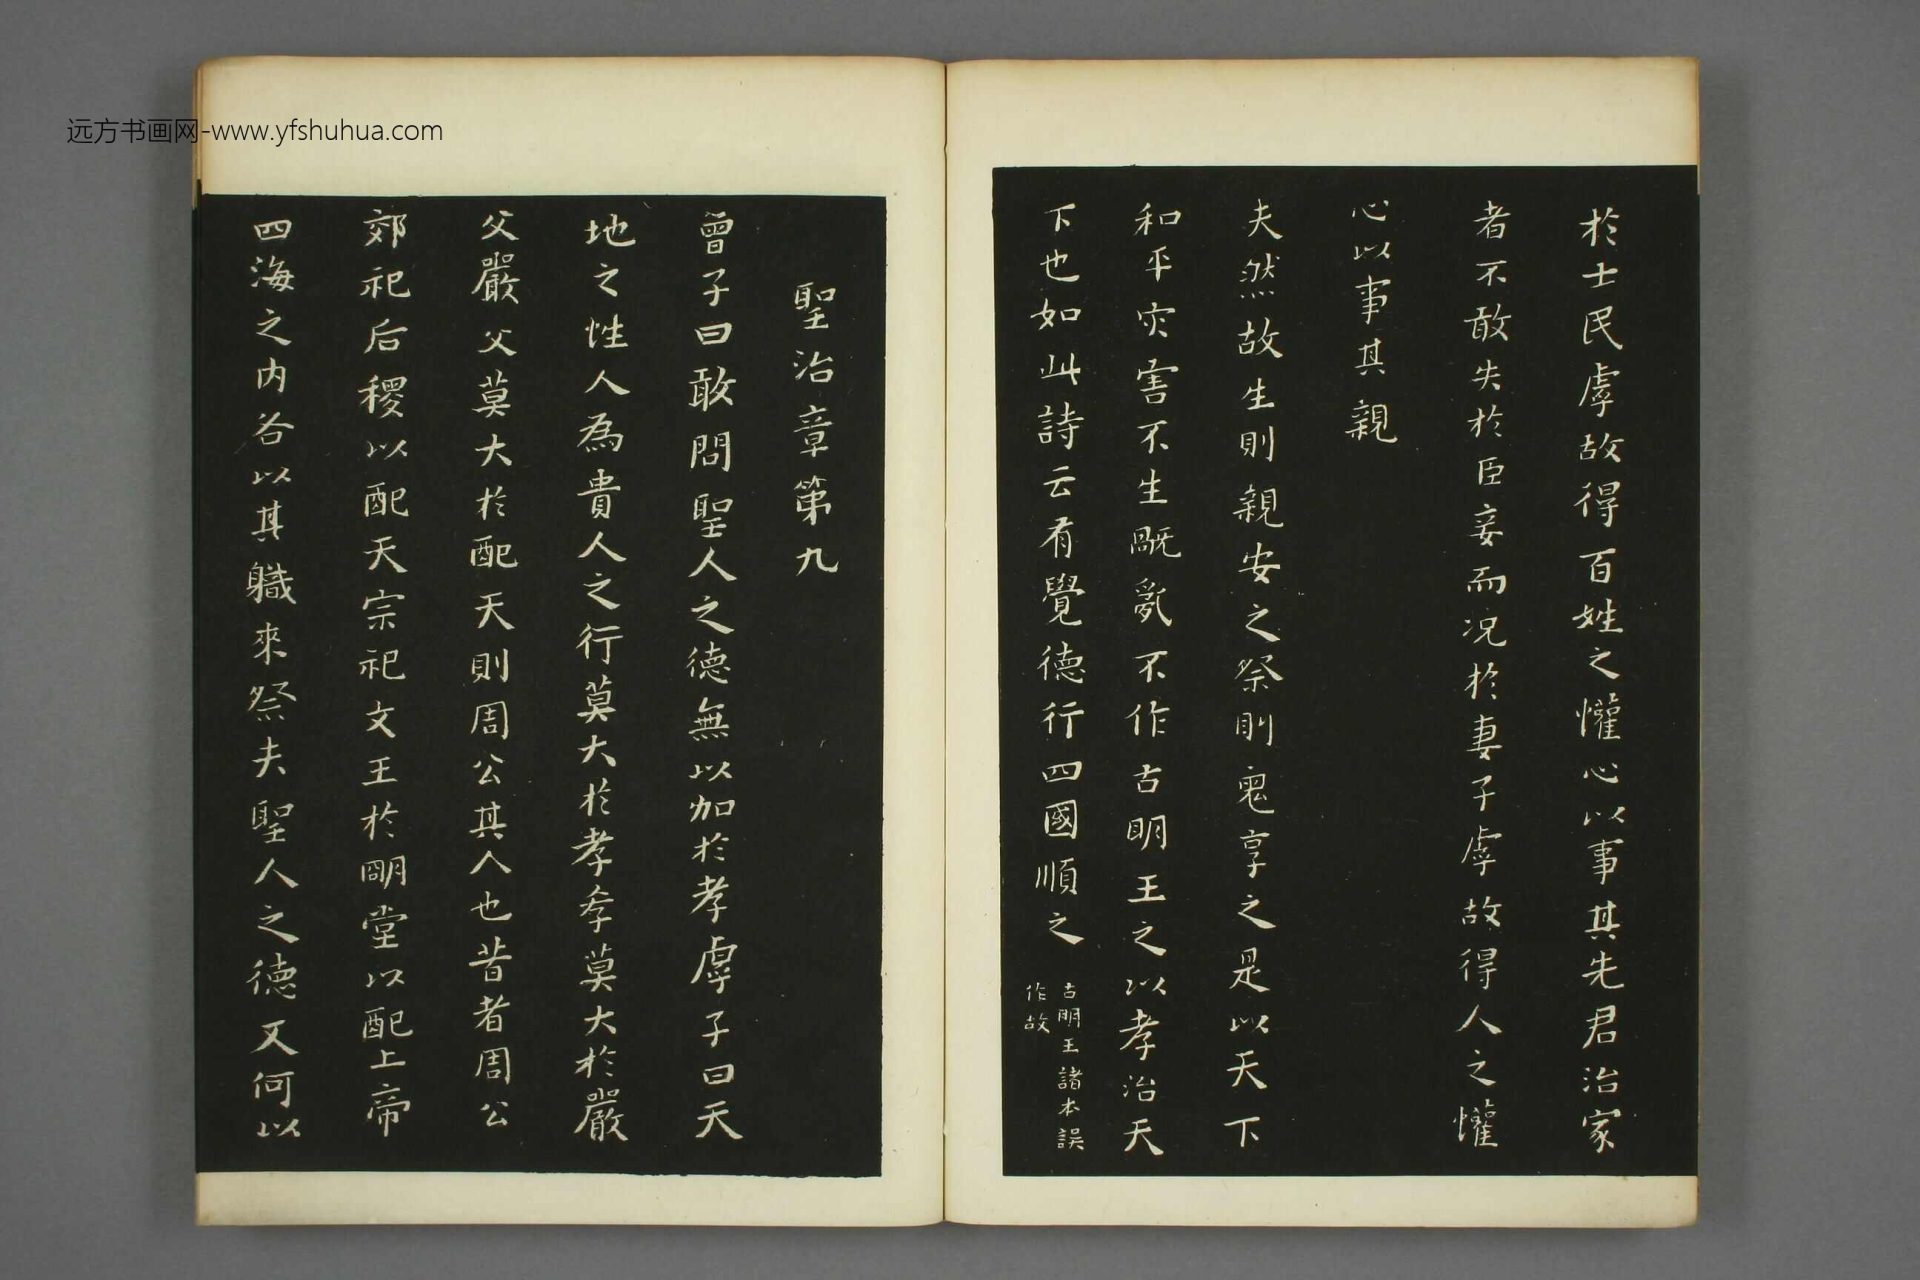 远方书画网-www.yfshuhua.com
於士民虖故得百姓之懽心以事其先君治家
者不敢失於臣妾而况於妻子虖故得人之懽
心以事其親
夫然故生則親安之祭則鬼享之是以天下
和平灾害不生旤亂不作古明王之以孝治天
下也如此詩云有覺德行四國順之
古明王諸本誤
作故
聖治章第九
曾子曰敢問聖人之德無以加於孝虖子曰天
地之性人為貴人之行莫大於孝孝莫大於嚴
父嚴父莫大於配天則周公其人也昔者周公
郊祀后稷以配天宗祀文王於朙堂以配上帝
四海之内各以其職來祭夫聖人之德又何以